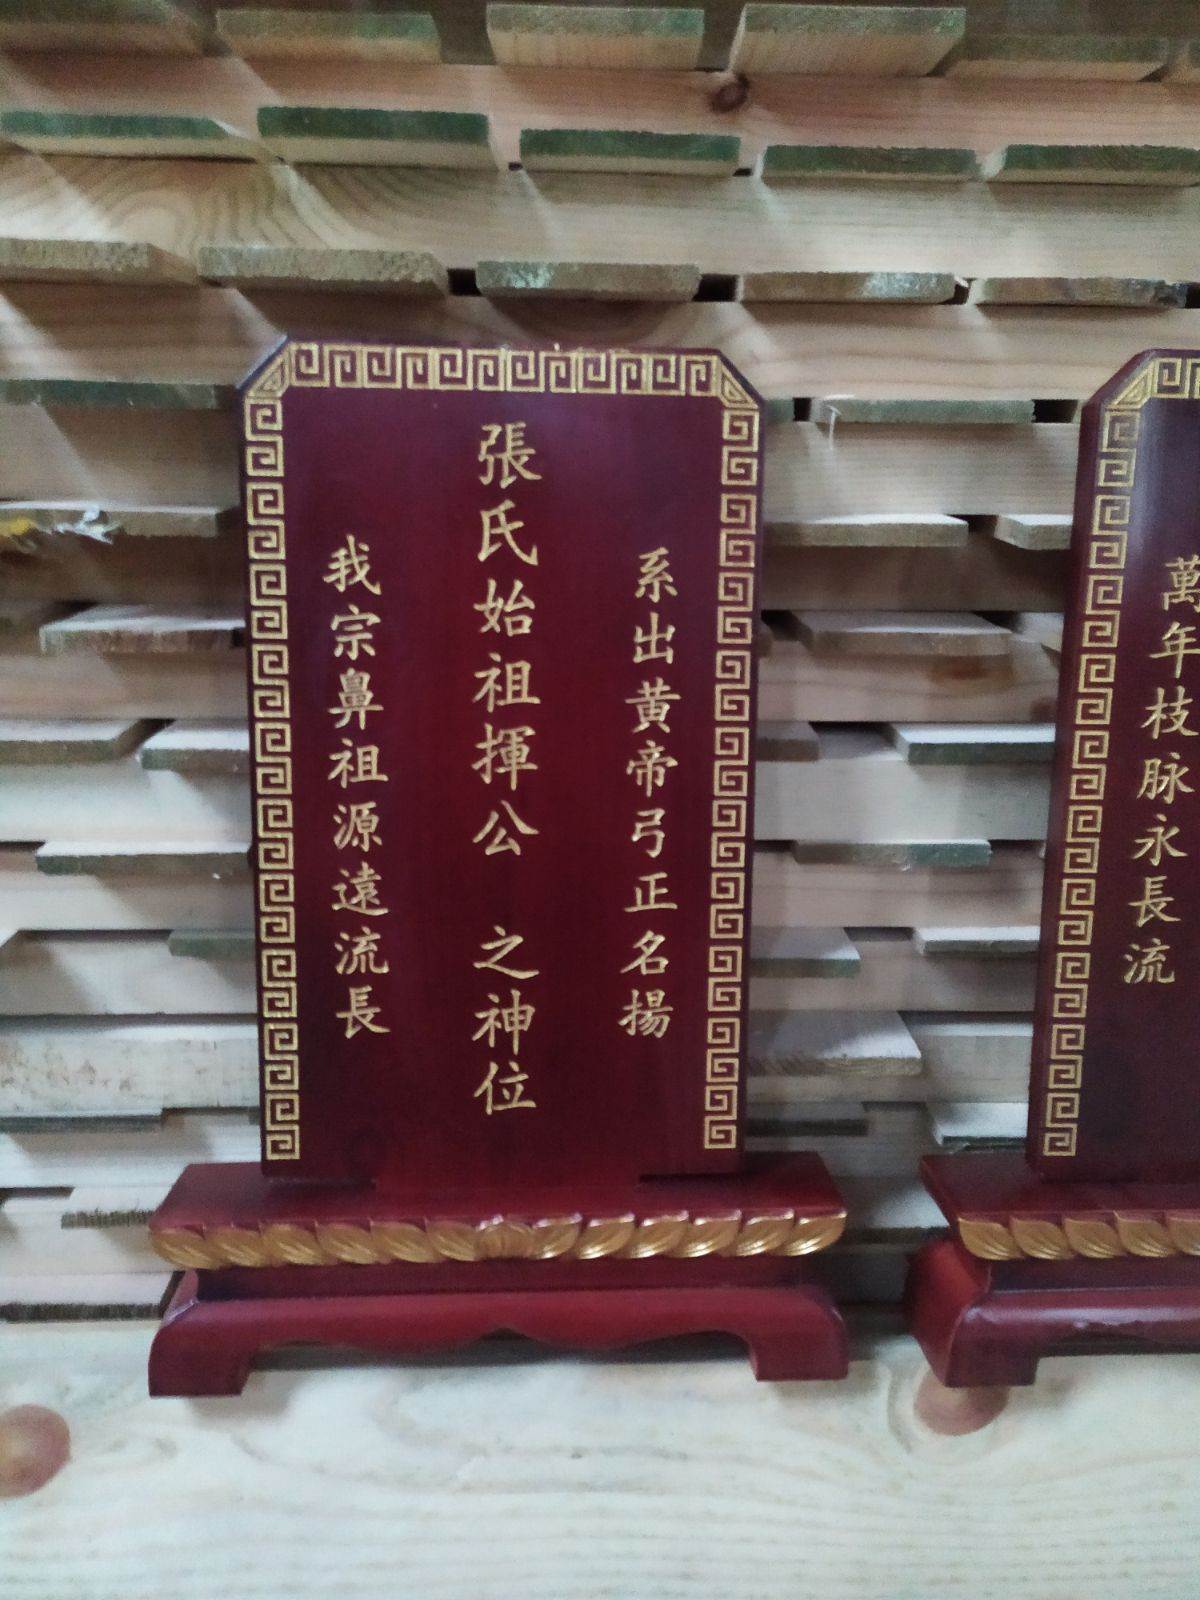 系出黄帝弓正名揚
張氏始祖揮公 之神位
我宗鼻祖源遠流長
萬年枝脉永長流